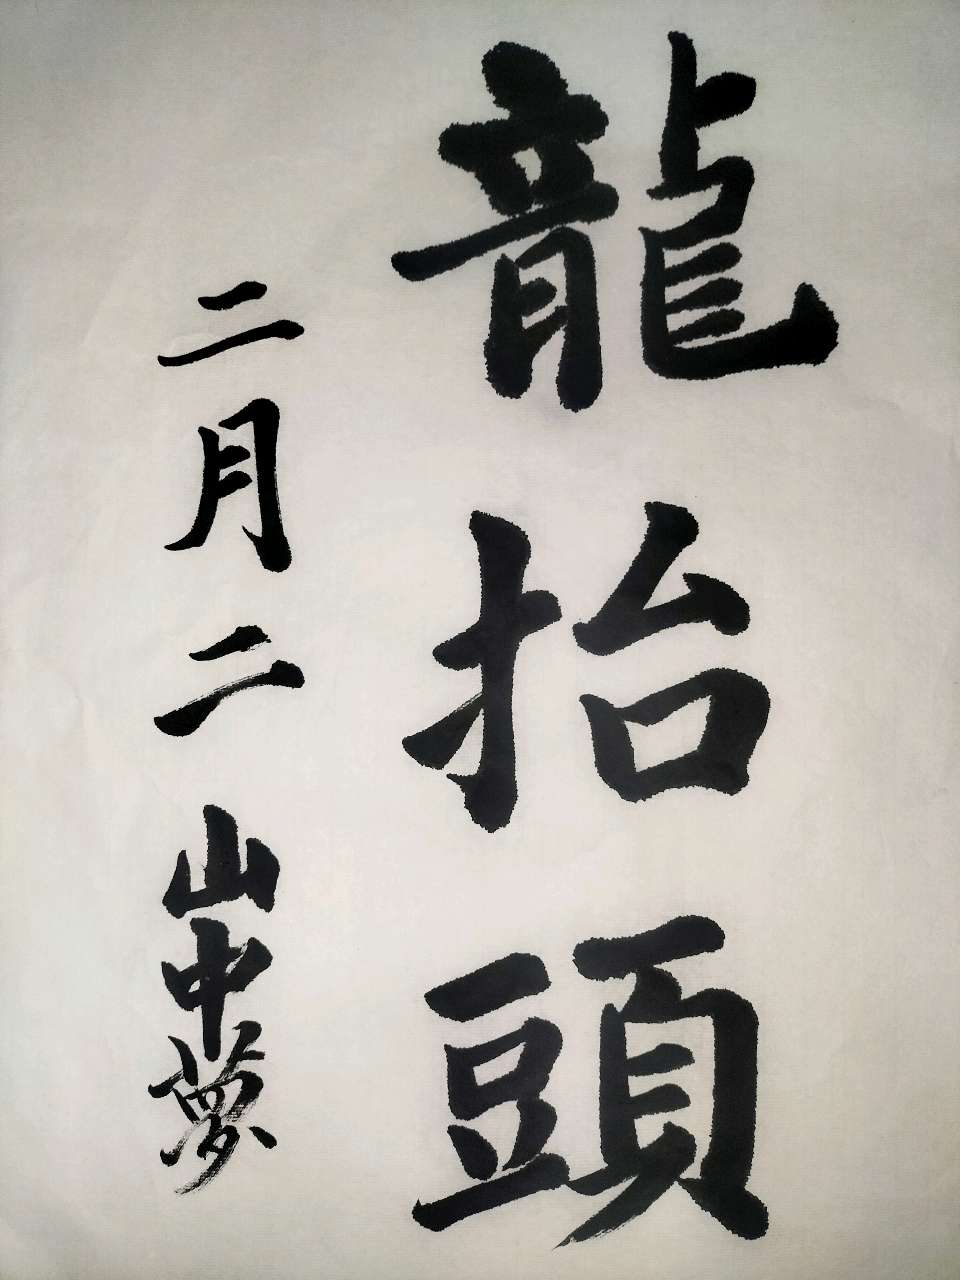 龍抬頭
二月二 山中夢